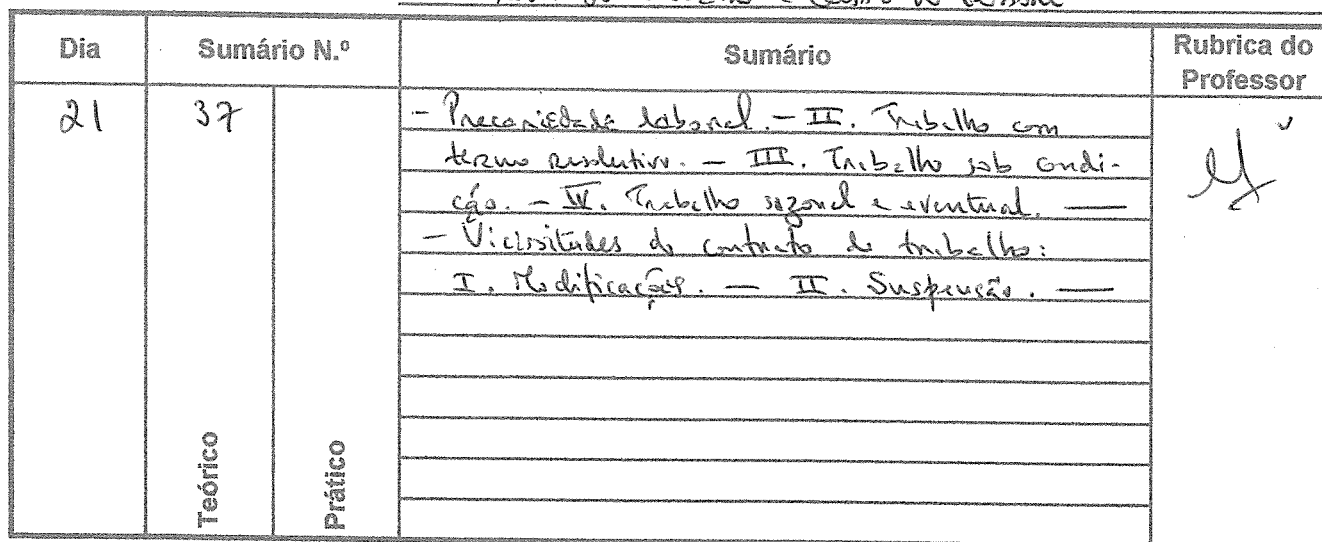 Dia Sumário N.º Sumário Rubrica do Professor
21 37 - Precariedade laboral. - II. Trabalho com
termo resolutivo. - III. Trabalho sob condi-
ção. - IV. Trabalho sazonal e eventual. —
- Vicissitudes do contrato de trabalho:
I. Modificações. — II. Suspensão. —
Teórico
Prático